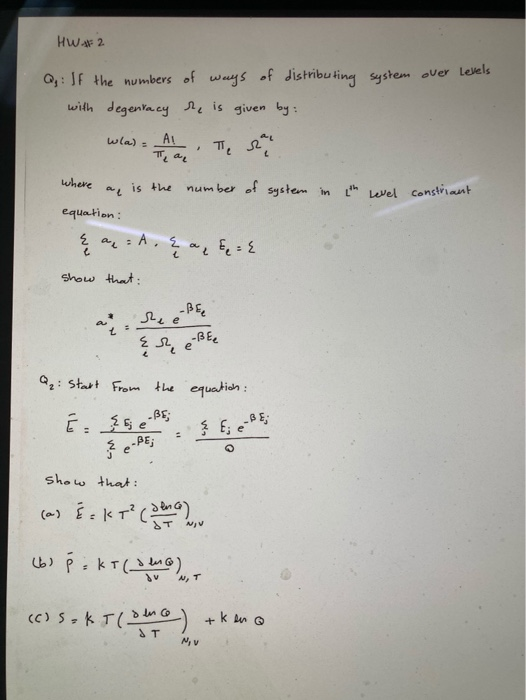 HW# 2
Q₁: If the numbers of ways of distributing system over levels
with degenracy Ω_ℓ is given by:
w(a) = A! / π_ℓ a_ℓ , π_ℓ Ω_ℓ^{a_ℓ}
where a_ℓ is the number of system in L^th Level constriant
equation:
Σ_ℓ a_ℓ = A , Σ_ℓ a_ℓ E_ℓ = Σ
show that:
a*_ℓ = Ω_ℓ e^{-βE_ℓ} / Σ_ℓ Ω_ℓ e^{-βE_ℓ}
Q₂: Start From the equation:
Ē = Σ_j E_j e^{-βE_j} / Σ_j e^{-βE_j} = Σ_j E_j e^{-βE_j} / Q
show that:
(a) Ē = kT² (∂lnQ/∂T)_{N,V}
(b) P̄ = kT (∂lnQ/∂V)_{N,T}
(c) S = kT (∂lnQ/∂T)_{N,V} + k ln Q